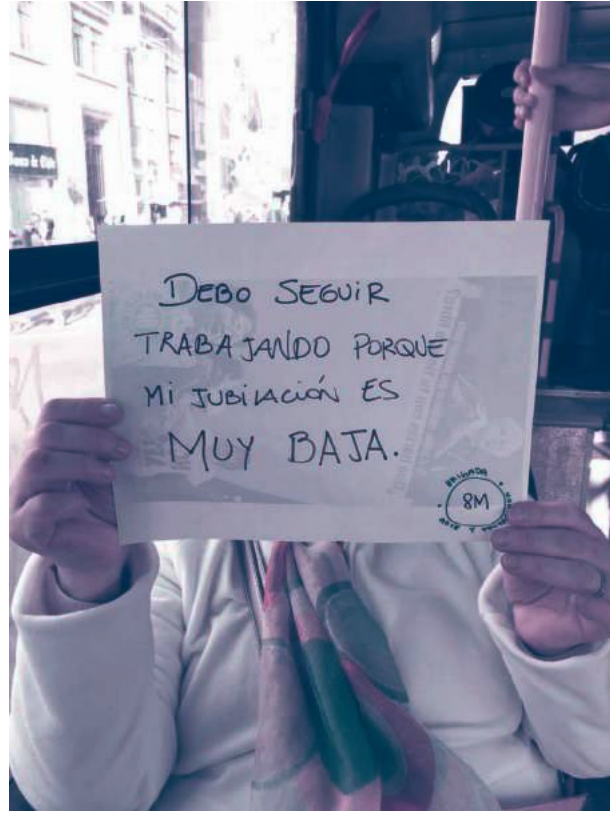 DEBO SEGUIR
TRABAJANDO PORQUE
MI JUBILACIÓN ES
MUY BAJA.
BRIGADA
8M
ARTE Y